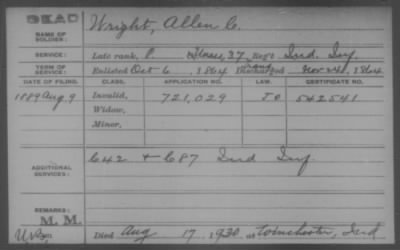 DEAD
Wright, Allen C.
NAME OF SOLDIER:
SERVICE: Late rank, P. Unass, 37, Reg't Ind. Inf.
TERM OF SERVICE: Enlisted Oct 6, 1864 Discharged Nov 24, 1864
DATE OF FILING. CLASS. APPLICATION NO. LAW. CERTIFICATE NO.
1889 Aug 9 Invalid, 721,029 542541
Widow,
Minor,
ADDITIONAL SERVICES: 642 + 687 Ind Inf
REMARKS:
M. M.
Died Aug 17, 1930, at Winchester, Ind